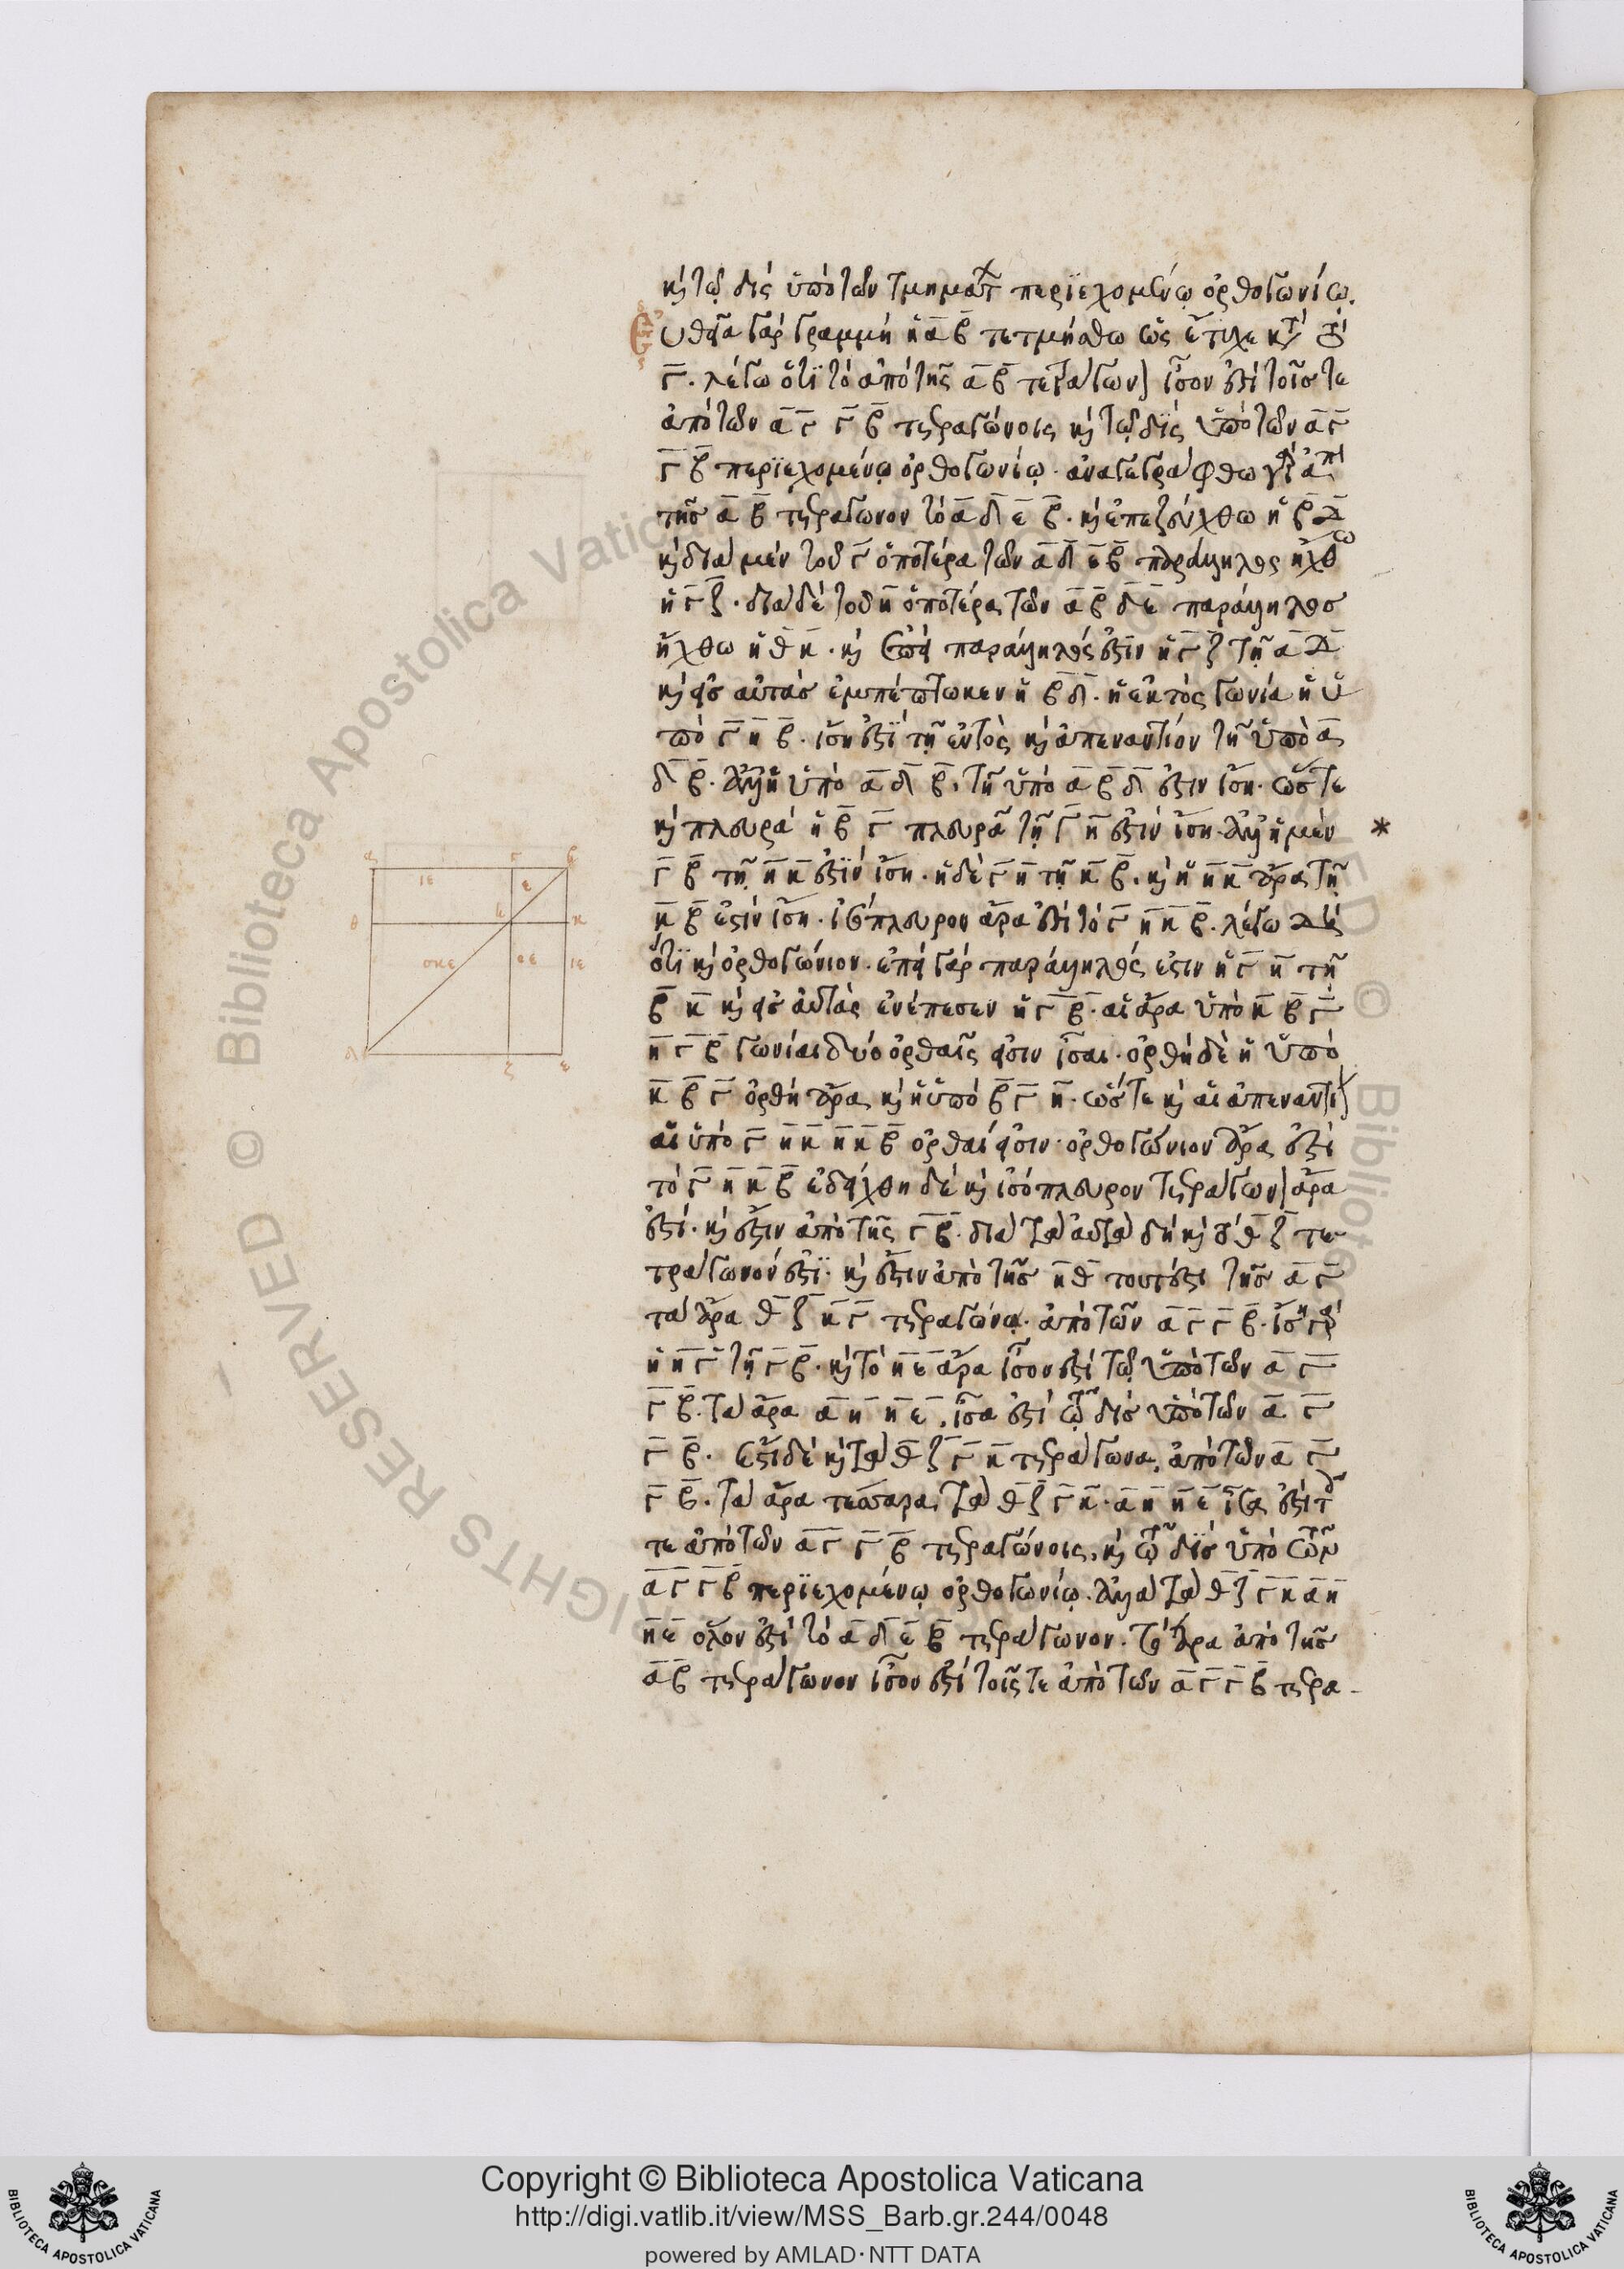 καὶ τῷ δὶς ὑπὸ τῶν τμημάτων περιεχομένῳ ὀρθογωνίῳ.
Εὐθεῖα γὰρ γραμμὴ ἡ α β τετμήσθω ὡς ἔτυχε κατὰ τὸ
γ. λέγω ὅτι τὸ ἀπὸ τῆς α β τετράγωνον ἴσον ἐστὶ τοῖς τε
ἀπὸ τῶν α γ γ β τετραγώνοις καὶ τῷ δὶς ὑπὸ τῶν α γ
γ β περιεχομένῳ ὀρθογωνίῳ. ἀναγεγράφθω γὰρ ἀπὸ
τῆς α β τετράγωνον τὸ α δ ε β. καὶ ἐπεζεύχθω ἡ β δ
καὶ διὰ μὲν τοῦ γ ὁποτέρα τῶν α δ ε β παράλληλος ἤχθω
ἡ γ ζ. διὰ δὲ τοῦ η ὁποτέρα τῶν α β δ ε παράλληλος
ἤχθω ἡ θ κ. καὶ ἐπεὶ παράλληλός ἐστιν ἡ γ ζ τῇ α δ
καὶ εἰς αὐτὰς ἐμπέπτωκεν ἡ β δ. ἡ ἐκτὸς γωνία ἡ ὑ
πὸ γ η β. ἴση ἐστὶ τῇ ἐντὸς καὶ ἀπεναντίον τῇ ὑπὸ α
δ β. ἀλλ' ἡ ὑπὸ α δ β. τῇ ὑπὸ α β δ ἐστιν ἴση. ὥστε
καὶ πλευρὰ ἡ β γ πλευρᾷ τῇ γ η ἐστὶν ἴση. ἀλλ' ἡ μὲν *
γ β τῇ η κ ἐστὶν ἴση. ἡ δὲ γ η τῇ κ β. καὶ ἡ η κ ἄρα τῇ
κ β ἐστὶν ἴση. ἰσόπλευρον ἄρα ἐστὶ τὸ γ η κ β. λέγω δὴ
ὅτι καὶ ὀρθογώνιον. ἐπεὶ γὰρ παράλληλός ἐστιν ἡ γ η τῇ
β κ καὶ εἰς αὐτὰς ἐνέπεσεν ἡ γ β. αἱ ἄρα ὑπὸ κ β γ
η γ β γωνίαι δύο ὀρθαῖς εἰσιν ἴσαι. ὀρθὴ δὲ ἡ ὑπὸ
κ β γ ὀρθὴ ἄρα καὶ ἡ ὑπὸ β γ η. ὥστε καὶ αἱ ἀπεναντίον
αἱ ὑπὸ γ η κ η κ β ὀρθαί εἰσιν. ὀρθογώνιον ἄρα ἐστὶ
τὸ γ η κ β ἐδείχθη δὲ καὶ ἰσόπλευρον τετράγωνον ἄρα
ἐστί. καὶ ἔστιν ἀπὸ τῆς γ β. διὰ τὰ αὐτὰ δὴ καὶ τὸ θ ζ τε
τράγωνόν ἐστι. καὶ ἔστιν ἀπὸ τῆς η θ τουτέστι τῆς α γ
τὰ ἄρα θ ζ κ γ τετράγωνα. ἀπὸ τῶν α γ γ β. ἴση γὰρ
ἡ η γ τῇ γ β. καὶ τὸ η ε ἄρα ἴσον ἐστὶ τῷ ὑπὸ τῶν α γ
γ β. τὰ ἄρα α η η ε, ἴσα ἐστὶ τῷ δὶς ὑπὸ τῶν α γ
γ β. ἔστι δὲ καὶ τὰ θ ζ γ κ τετράγωνα, ἀπὸ τῶν α γ
γ β. τὰ ἄρα τέσσαρα, τὰ θ ζ γ κ. α η η ε ἴσα ἐστὶ τοῖς
τε ἀπὸ τῶν α γ γ β τετραγώνοις, καὶ τῷ δὶς ὑπὸ τῶν
α γ γ β περιεχομένῳ ὀρθογωνίῳ. ἀλλὰ τὰ θ ζ γ κ α η
η ε ὅλον ἐστὶ τὸ α δ ε β τετράγωνον. τὸ ἄρα ἀπὸ τῆς
α β τετράγωνον ἴσον ἐστὶ τοῖς τε ἀπὸ τῶν α γ γ β τετρα-
α γ β
ιε ε
θ η κ
σκε σε ιε
δ ζ ε
© Biblioteca Apostolica Vaticana
RIGHTS RESERVED
Copyright © Biblioteca Apostolica Vaticana
http://digi.vatlib.it/view/MSS_Barb.gr.244/0048
powered by AMLAD·NTT DATA
BIBLIOTECA APOSTOLICA VATICANA
BIBLIOTECA APOSTOLICA VATICANA